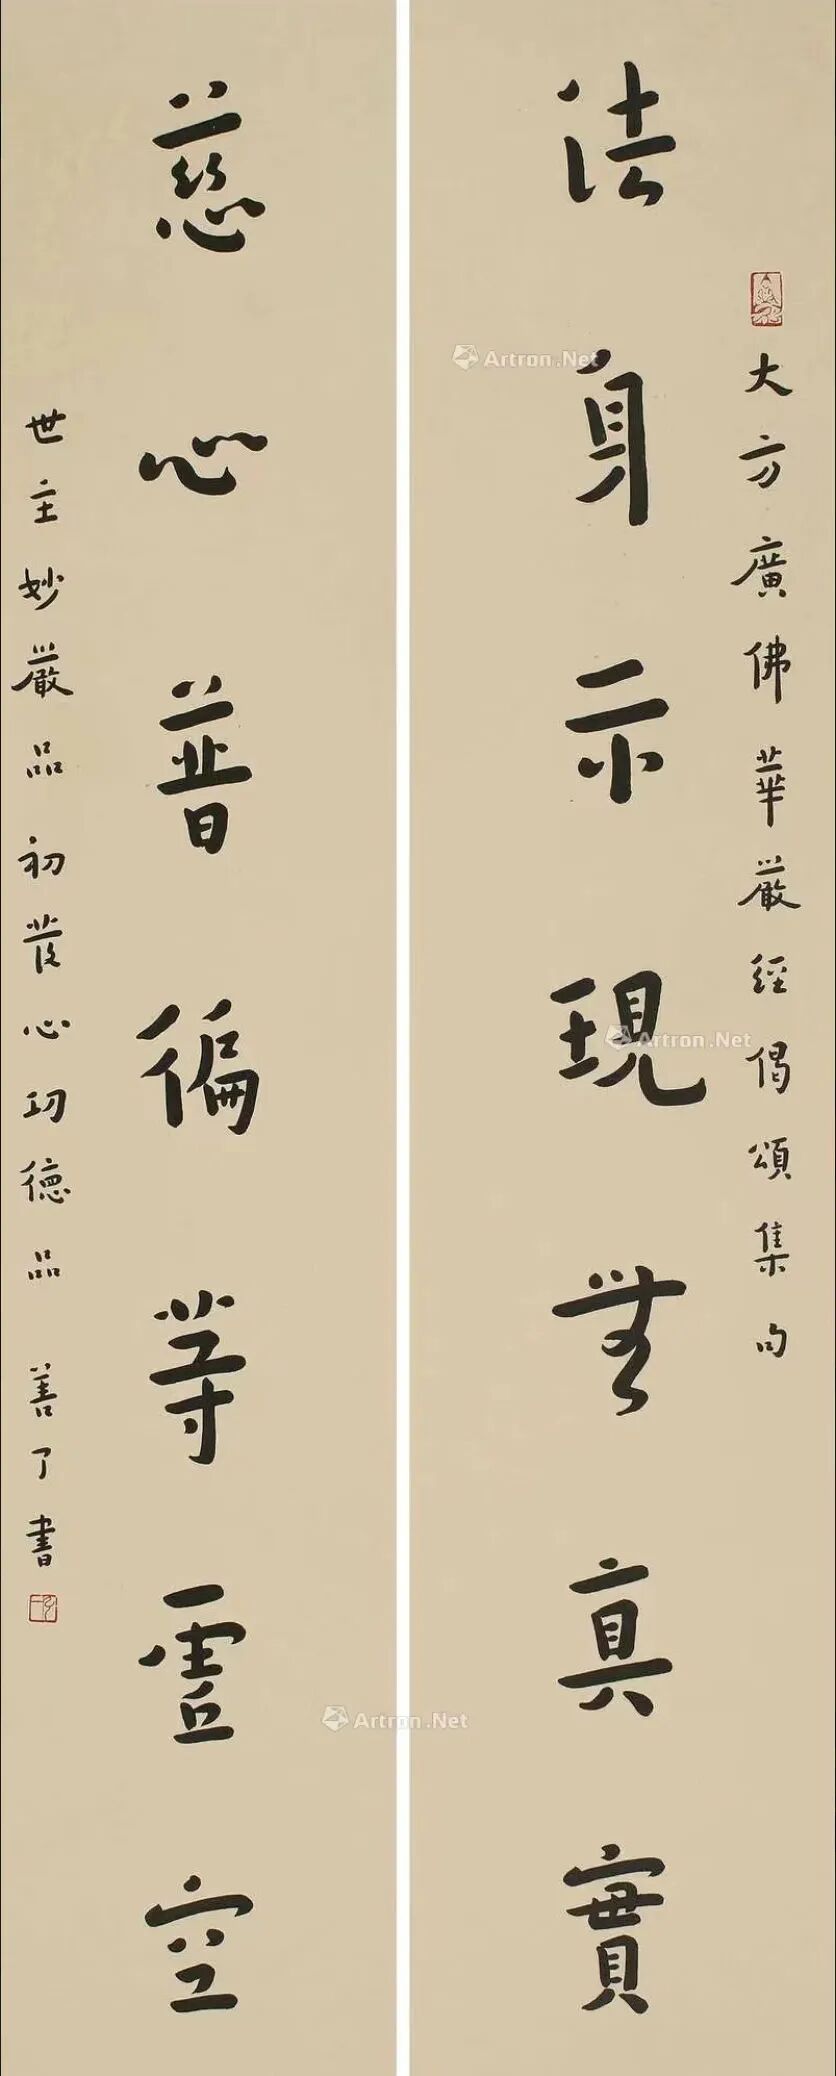 大方廣佛華嚴經偈頌集句
法身示現無真實
慈心普徧等虛空
世主妙嚴品初發心功德品 善了書
Artron.Net
Artron.Net
Artron.Net